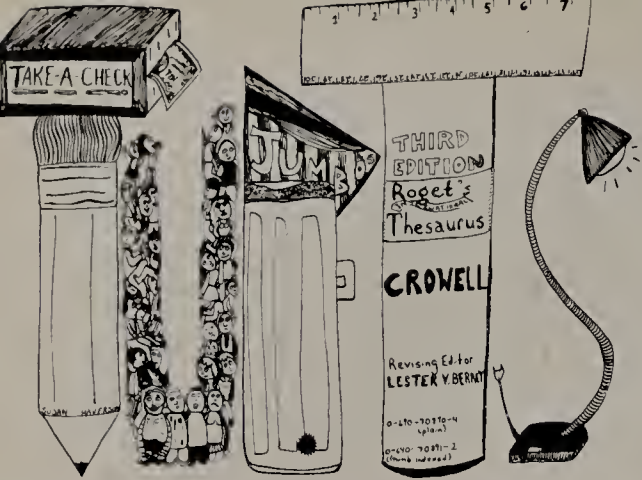 TAKE-A-CHECK
JUMBO
1 2 3 4 5 6 7
THIRD
EDITION
Roget's
INTERNATIONAL
Thesaurus
CROWELL
Revising Editor
LESTER V. BERREY
0-690-70890-4
(plain)
0-690-70891-2
(thumb indexed)
SUSAN HAVERSON